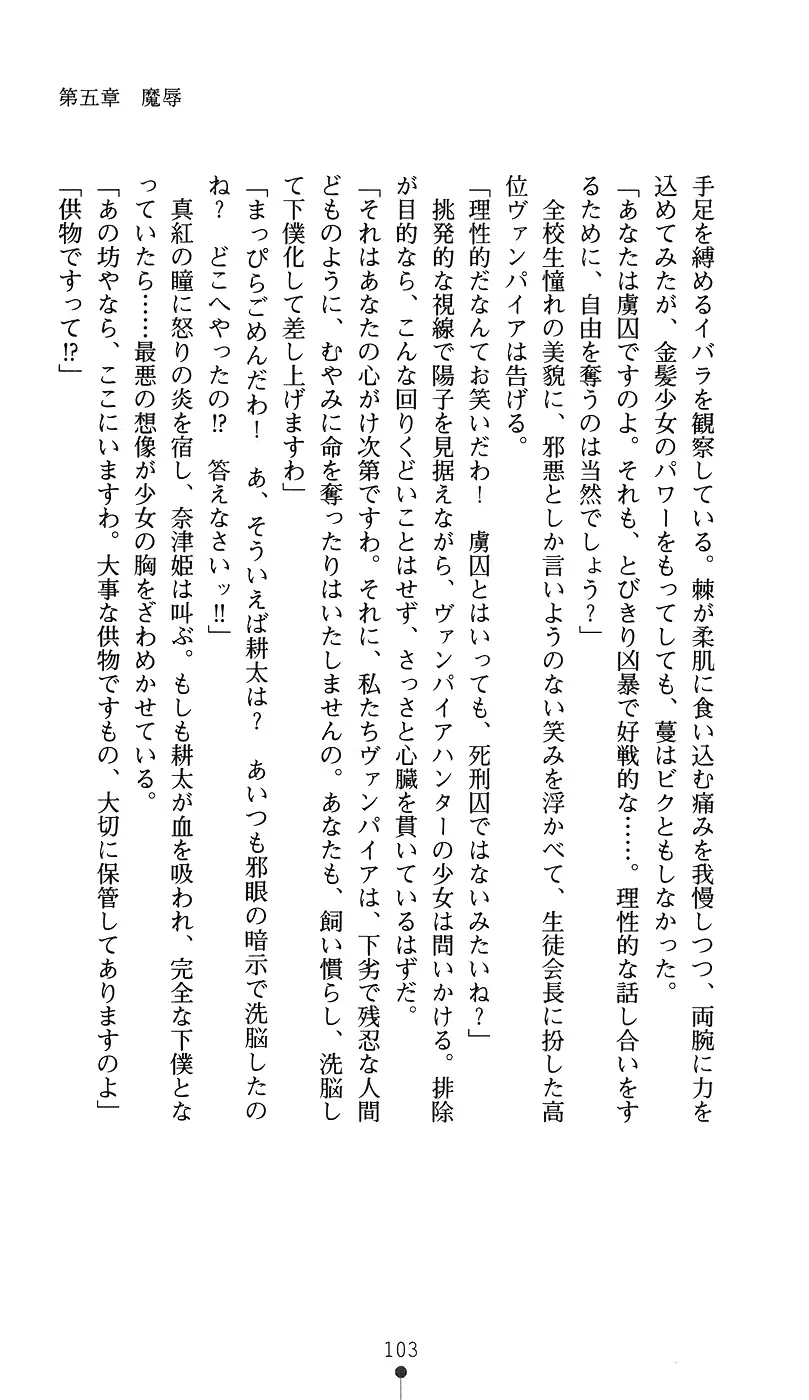 第五章　魔辱
手足を縛めるイバラを観察している。棘が柔肌に食い込む痛みを我慢しつつ、両腕に力を
込めてみたが、金髪少女のパワーをもってしても、蔓はビクともしなかった。
「あなたは虜囚ですのよ。それも、とびきり凶暴で好戦的な……。理性的な話し合いをす
るために、自由を奪うのは当然でしょう？」
　全校生憧れの美貌に、邪悪としか言いようのない笑みを浮かべて、生徒会長に扮した高
位ヴァンパイアは告げる。
「理性的だなんてお笑いだわ！　虜囚とはいっても、死刑囚ではないみたいね？」
　挑発的な視線で陽子を見据えながら、ヴァンパイアハンターの少女は問いかける。排除
が目的なら、こんな回りくどいことはせず、さっさと心臓を貫いているはずだ。
「それはあなたの心がけ次第ですわ。それに、私たちヴァンパイアは、下劣で残忍な人間
どものように、むやみに命を奪ったりはいたしませんの。あなたも、飼い慣らし、洗脳し
て下僕化して差し上げますわ」
「まっぴらごめんだわ！　あ、そういえば耕太は？　あいつも邪眼の暗示で洗脳したの
ね？　どこへやったの!?　答えなさいッ!!」
　真紅の瞳に怒りの炎を宿し、奈津姫は叫ぶ。もしも耕太が血を吸われ、完全な下僕とな
っていたら……最悪の想像が少女の胸をざわめかせている。
「あの坊やなら、ここにいますわ。大事な供物ですもの、大切に保管してありますのよ」
「供物ですって!?」
103